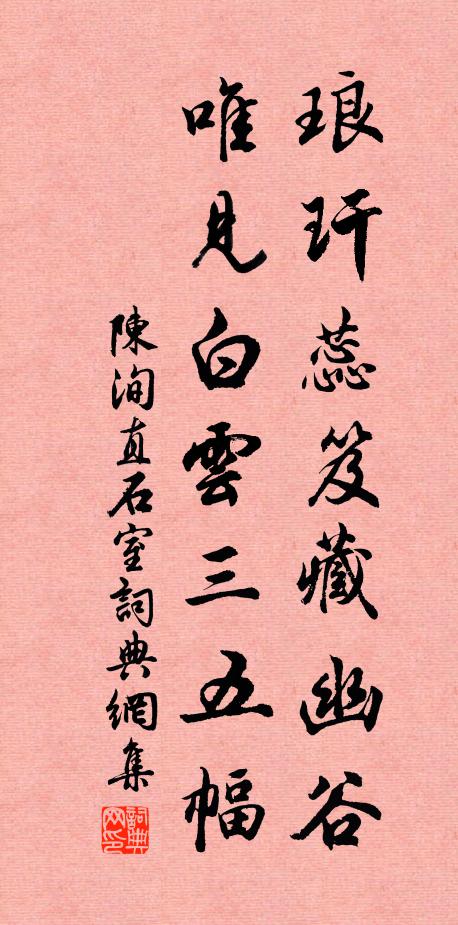 琅玕蕊笈藏幽谷
唯見白雲三五幅
陳洵直石室詞典網集
詞典网印